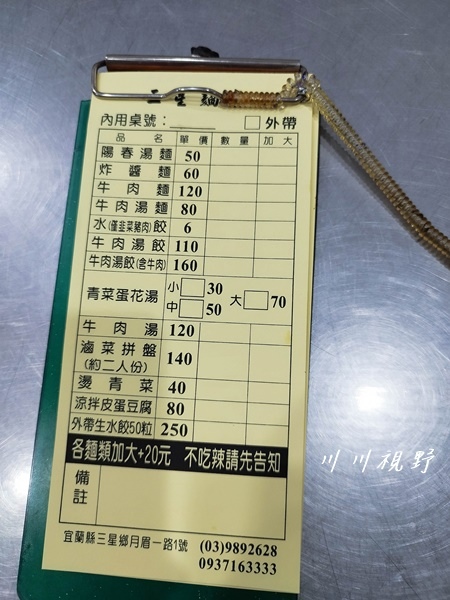 三星麵
內用桌號： 外帶
品名 單價 數量 加大
陽春湯麵 50
炸醬麵 60
牛肉麵 120
牛肉湯麵 80
水(僅韭菜豬肉)餃 6
牛肉湯餃 110
牛肉湯餃(含牛肉) 160
青菜蛋花湯 小 30 中 50 大 70
牛肉湯 120
滷菜拼盤(約二人份) 140
燙青菜 40
涼拌皮蛋豆腐 80
外帶生水餃50粒 250
各麵類加大+20元 不吃辣請先告知
備註
宜蘭縣三星鄉月眉一路1號 (03)9892628
0937163333
川川視野